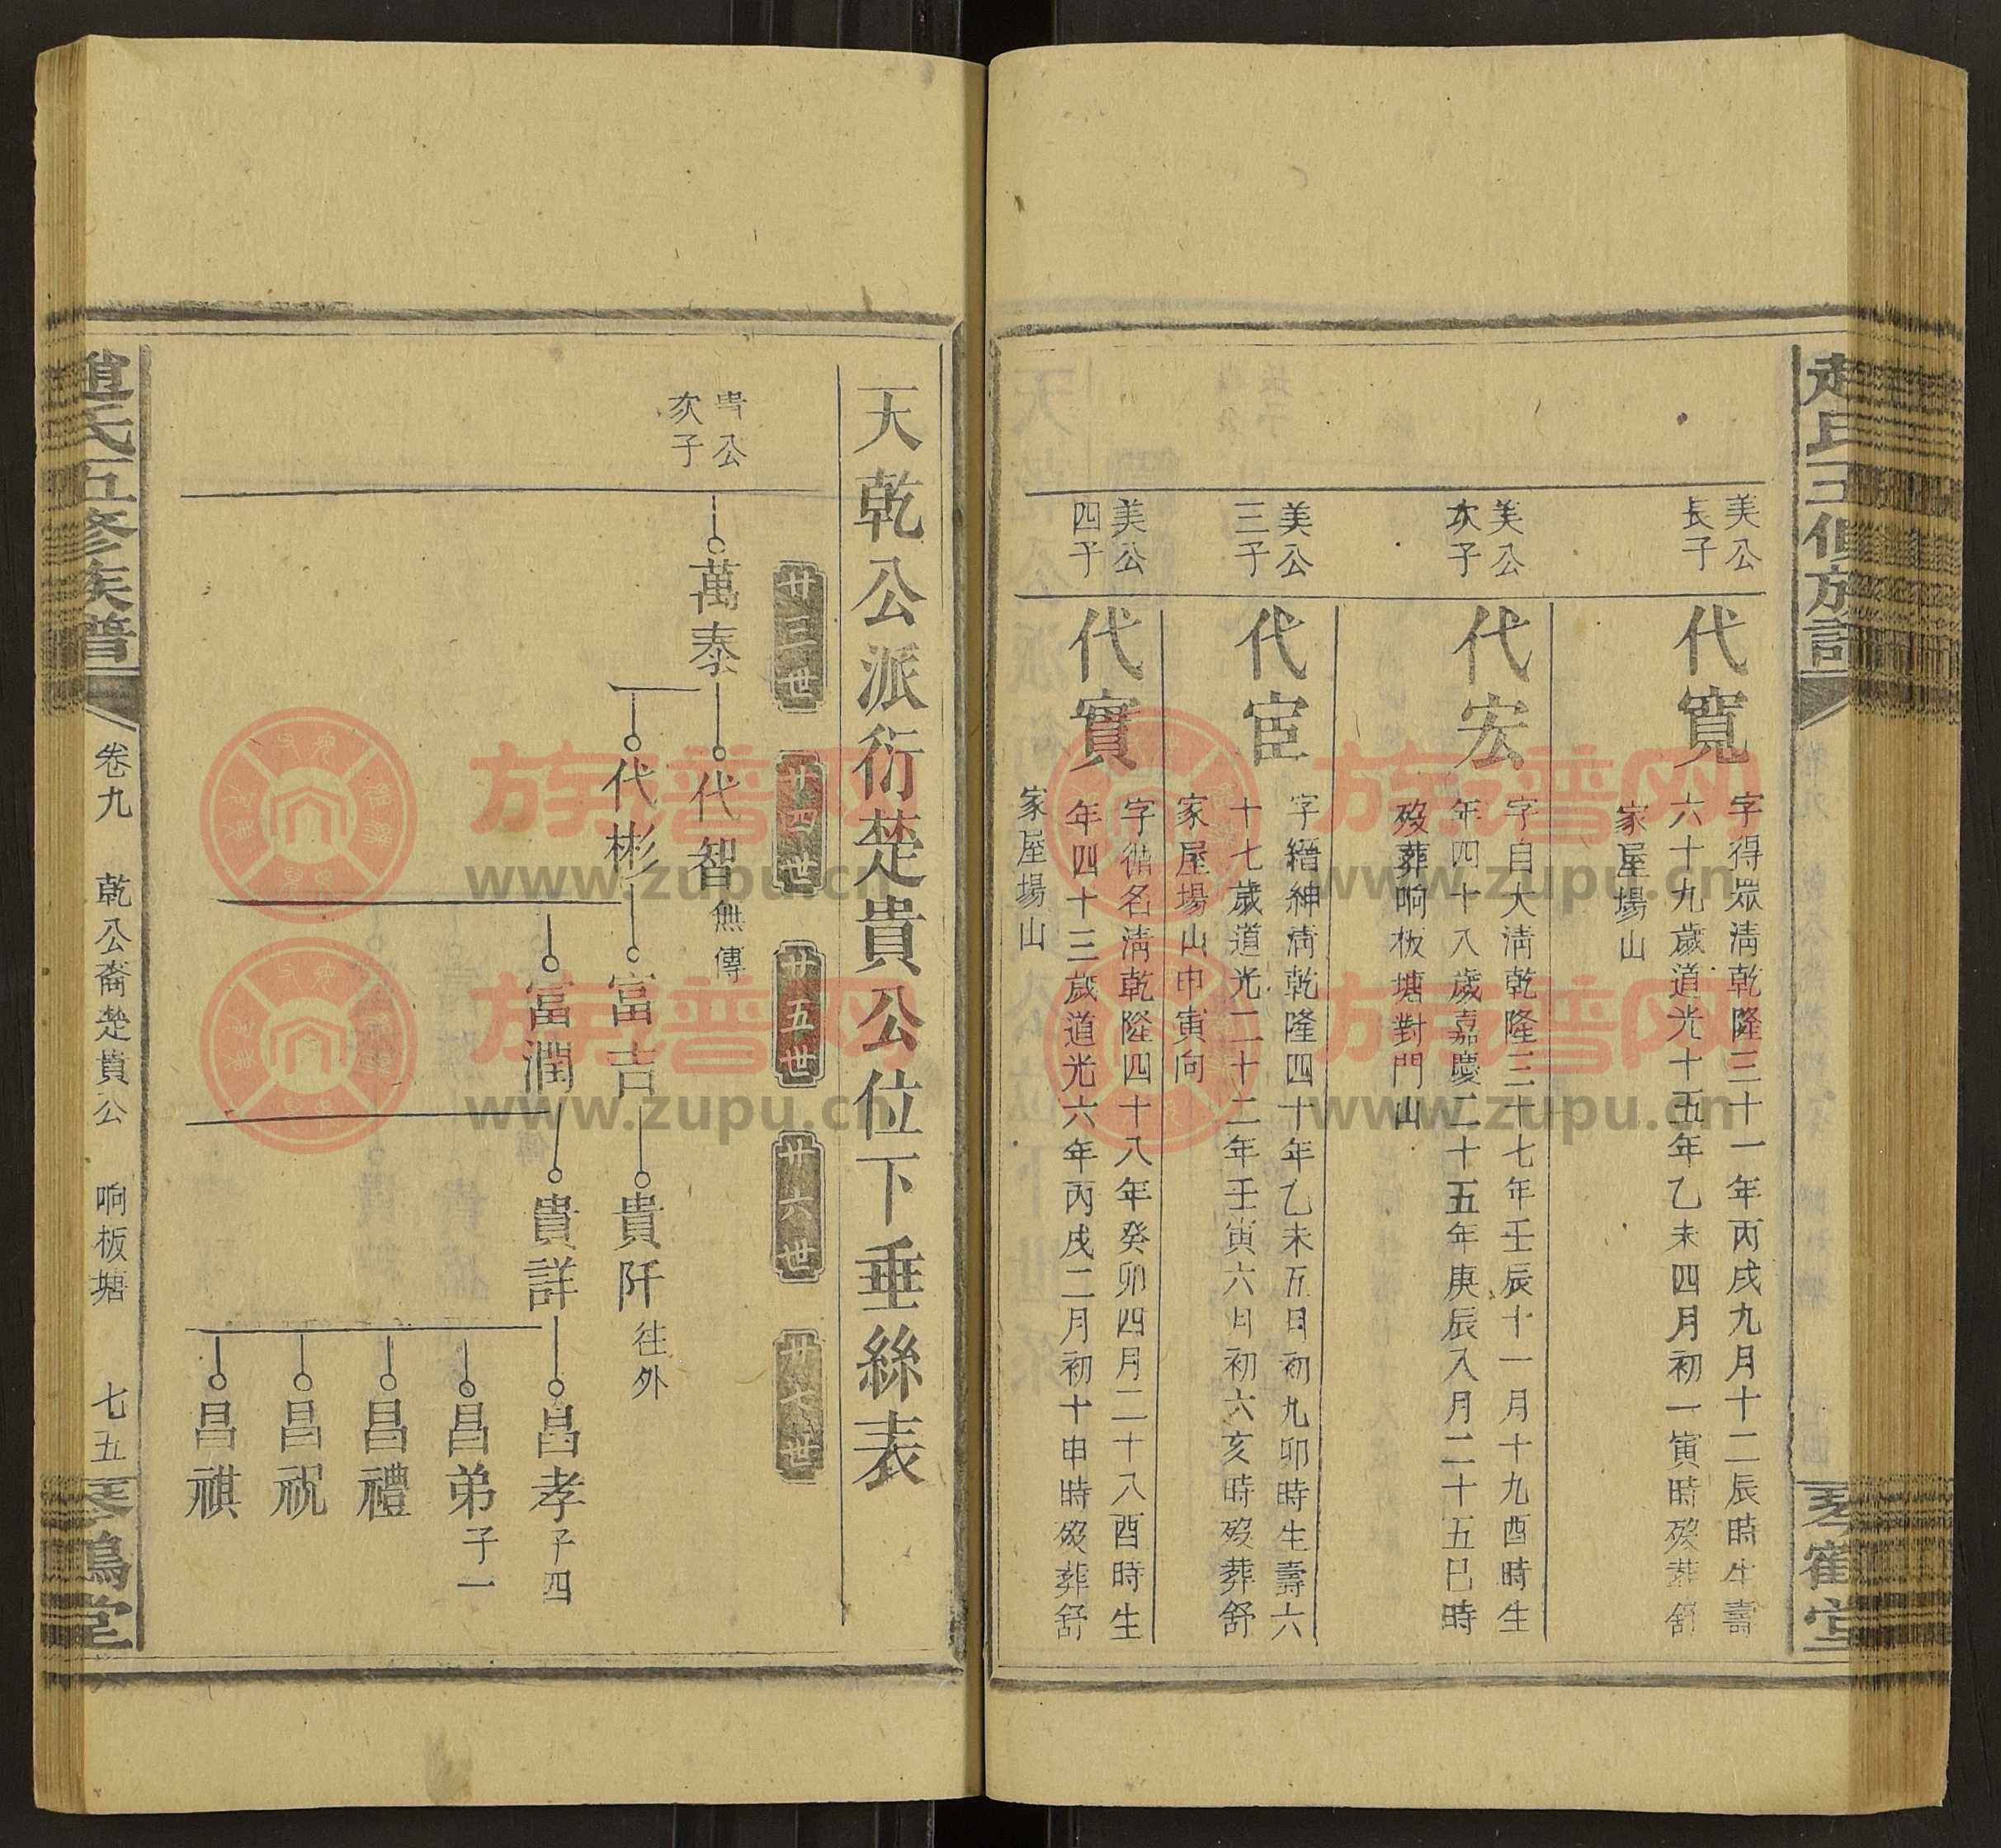 美公
長子
代寬
字得眾淸乾隆三十一年丙戌九月十二辰時生壽
六十九歲道光十五年乙未四月初一寅時歿葬舒
家屋場山
美公
次子
代宏
字自大淸乾隆三十七年壬辰十一月十九酉時生
年四十八歲嘉慶二十五年庚辰入月二十五巳時
歿葬响板塘對門山
美公
三子
代宦
字縉紳淸乾隆四十年乙未五月初九卯時生壽六
十七歲道光二十二年壬寅六月初六亥時歿葬舒
家屋場山申寅向
美公
四子
代實
字循名淸乾隆四十八年癸卯四月二十八酉時生
年四十三歲道光六年丙戌二月初十申時歿葬舒
家屋場山
天乾公派衍楚貴公位下垂絲表
廿三世
廿四世
廿五世
廿六世
廿七世
公
次子
萬泰
代智 無傳
代彬
富吉
富潤
貴阡 往外
貴詳
昌孝 子四
昌弟 子一
昌禮
昌祝
昌祺
趙氏五修族譜
卷九
乾公裔楚貴公
响板塘
七五
琴鶴堂
族譜网
www.zupu.cn
族譜网
www.zupu.cn
族譜网
www.zupu.cn
族譜网
www.zupu.cn